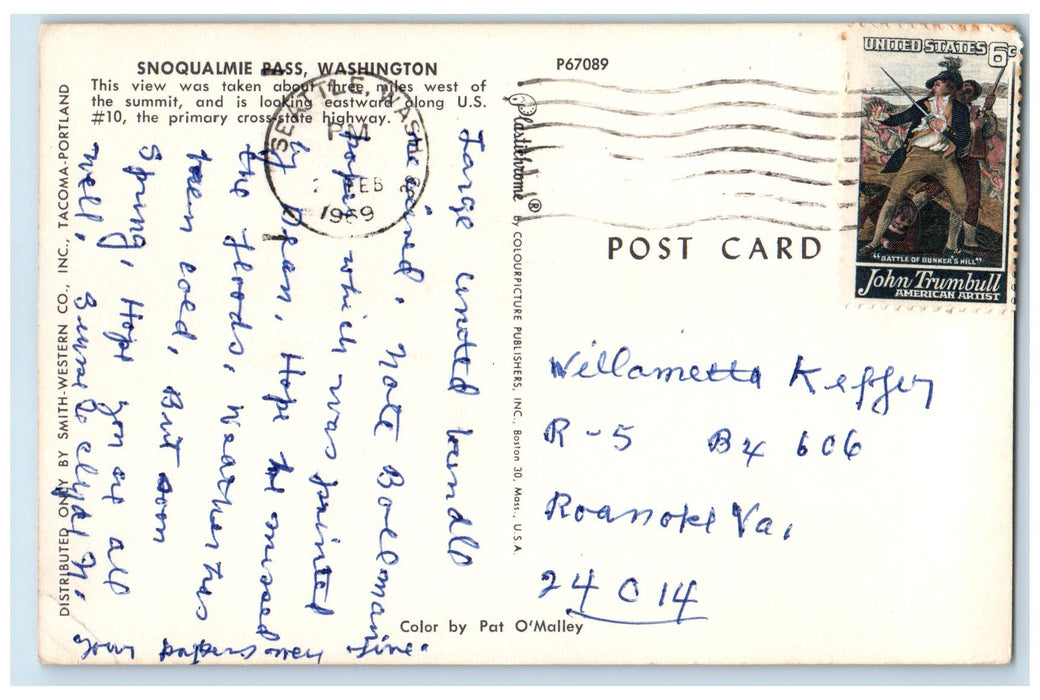 SNOQUALMIE PASS, WASHINGTON
This view was taken about three miles west of
the summit, and is looking eastward along U.S.
#10, the primary cross-state highway.
P67089
SEATTLE, WASH
PM
FEB
1969
UNITED STATES 6c
"BATTLE OF BUNKER'S HILL"
John Trumbull
AMERICAN ARTIST
POST CARD
Plastichrome ® by COLOURPICTURE PUBLISHERS, INC., Boston 30, Mass., U.S.A.
DISTRIBUTED ONLY BY SMITH-WESTERN CO., INC., TACOMA-PORTLAND
Large united bundle
received. Note
paper which was printed
by Dean, Hope he missed
the floods, Weather has
been cold, But soon
Spring, Hope you are all
well,
Willametta Keffer
R-5 Bx 606
Roanoke Va,
24014
Color by Pat O'Malley